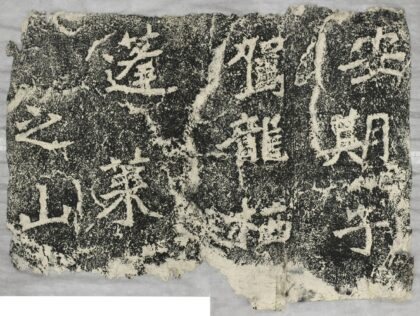 安期子
駕龍栖
蓬萊
之山